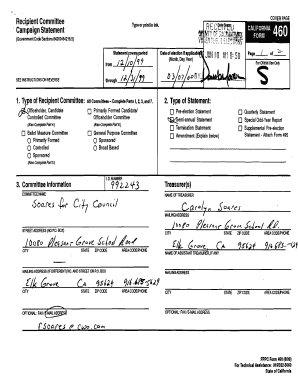 COVER PAGE
Recipient Committee
Campaign Statement
Type or print in ink.
CALIFORNIA
FORM 460
Statement covers period
from 12/10/99
through 12/31/99
Date of election if applicable:
(Month, Day, Year)
Page 1 of 2
For Official Use Only
SEE INSTRUCTIONS ON REVERSE
1. Type of Recipient Committee: All Committees – Complete Parts 1, 2, 3, and 7.
Officeholder, Candidate
Controlled Committee
(Also Complete Part 4)
Primarily Formed Candidate/
Officeholder Committee
(Also Complete Part 6)
Ballot Measure Committee
Primarily Formed
Controlled
Sponsored
(Also Complete Part 5)
General Purpose Committee
Sponsored
Broad Based
2. Type of Statement:
Pre-election Statement
Semi-annual Statement
Termination Statement
Amendment (Explain below)
Quarterly Statement
Special Odd-Year Report
Supplemental Pre-election
Statement - Attach Form 495
3. Committee Information
I.D. NUMBER
992243
COMMITTEE NAME
Soares for City Council
STREET ADDRESS (NO P.O. BOX)
10080 Pleasant Grove School Road
CITY STATE ZIP CODE AREA CODE/PHONE
Elk Grove CA 95624
MAILING ADDRESS (IF DIFFERENT) NO. AND STREET OR P.O. BOX
CITY STATE ZIP CODE AREA CODE/PHONE
OPTIONAL: FAX / E-MAIL ADDRESS
Treasurer(s)
NAME OF TREASURER
Carolyn Soares
MAILING ADDRESS
10080 Pleasant Grove School Rd.
CITY STATE ZIP CODE AREA CODE/PHONE
Elk Grove CA 95624
NAME OF ASSISTANT TREASURER, IF ANY
MAILING ADDRESS
CITY STATE ZIP CODE AREA CODE/PHONE
OPTIONAL: FAX / E-MAIL ADDRESS
State of California